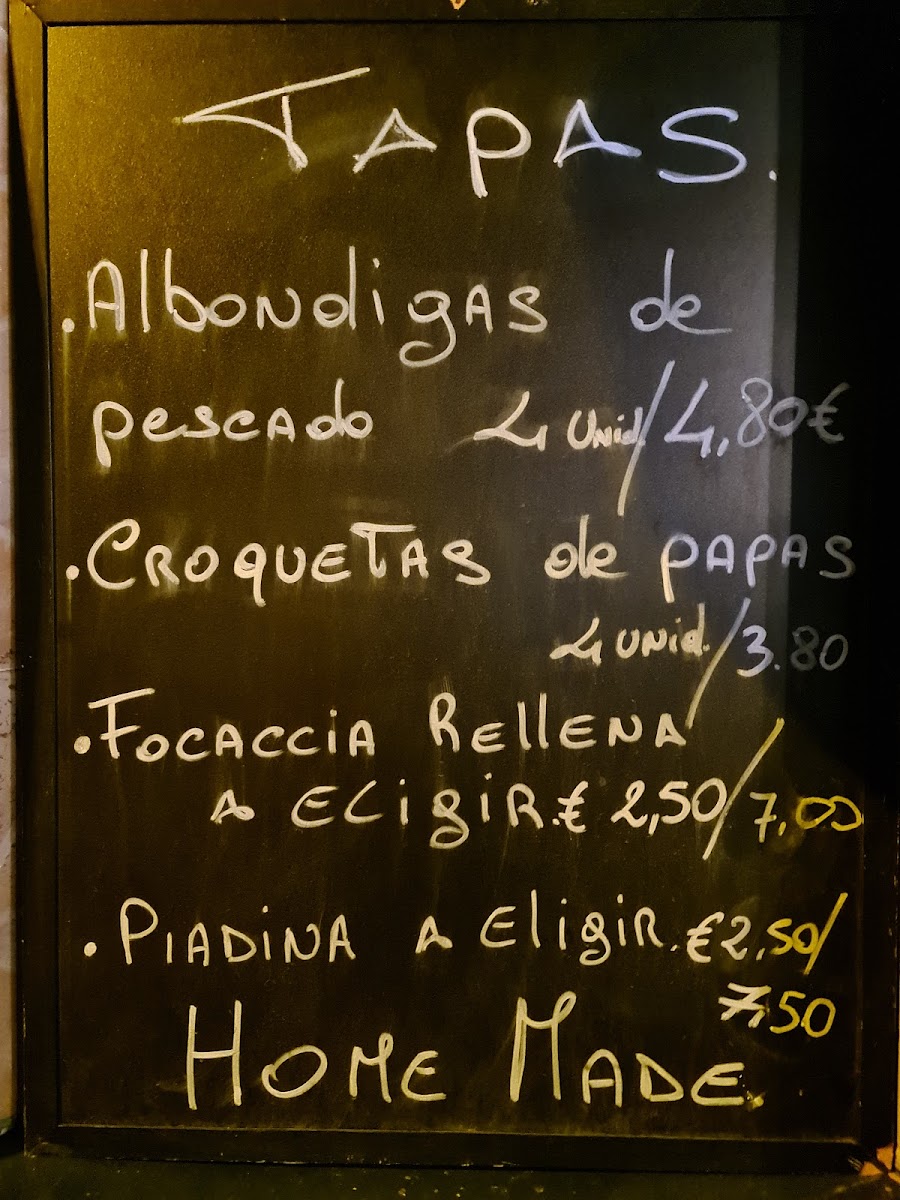 TAPAS.
.Albondigas de
pescado 4 Unid/4,80€
.CROQUETAS de PAPAS
4 UNID./3.80
.FOCACCIA RELLENA
A ELIGIR.€ 2,50/7,00
.PIADINA A ELIGIR.€2,50/
7,50
HOME MADE.